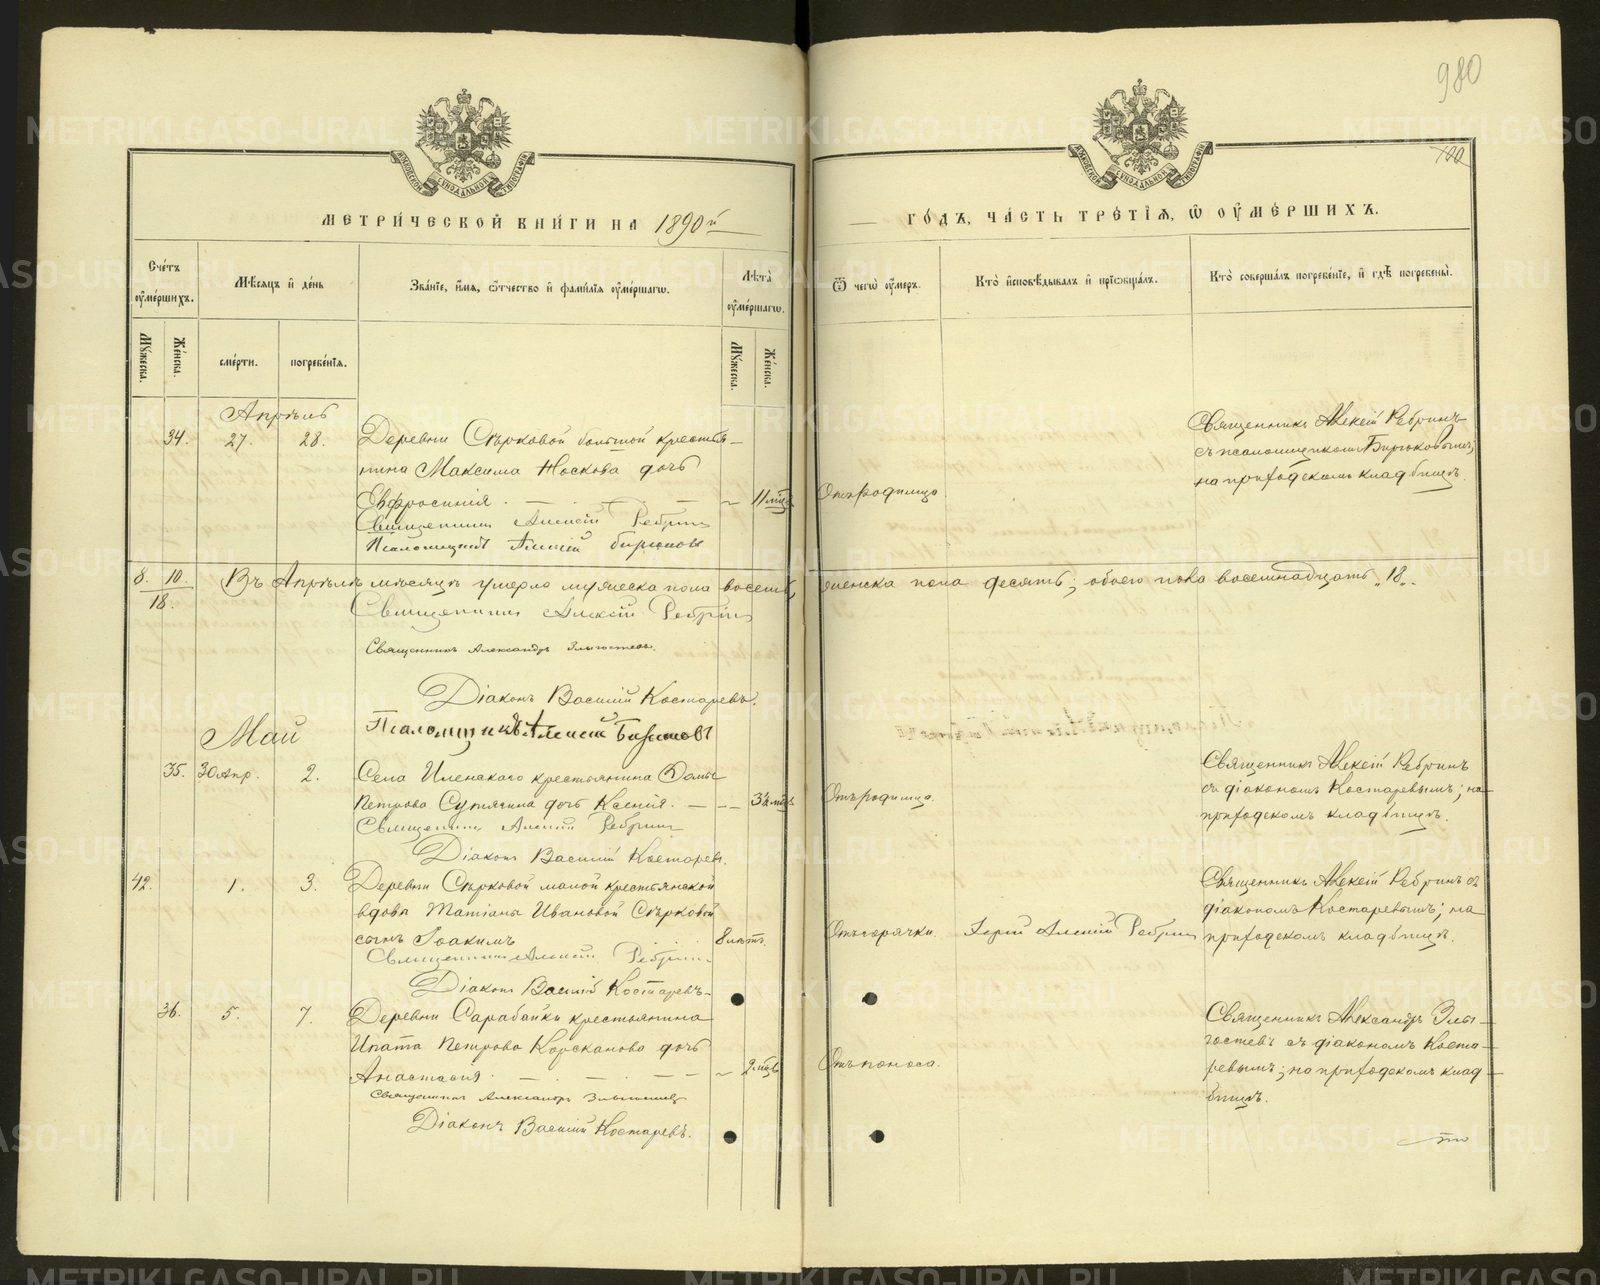 980
100
МЕТРИЧЕСКОЙ КНИГИ НА 1890й
ГОДЪ, ЧАСТЬ ТРЕТІЯ, Ѿ ОУМЕРШИХЪ.
Счетъ оумершихъ.
Мѣсяцъ и день
Званіе, имя, отчество и фамилія оумершагѡ.
Лѣта оумершагѡ.
Ѿ чегѡ оумеръ.
Кто исповѣдывалъ и пріобщалъ.
Кто совершалъ погребеніе, и гдѣ погребены.
Мужеска.
Женска.
смерти.
погребенія.
Мужеска.
Женска.
Апрѣль
34. 27. 28.
Деревни Сѣрковой большой крестья-
нина Максима Носкова дочь
Евфросинія
11 мѣс
Отъ родимца
Священникъ Алексій Ребринъ
съ псаломщикомъ Бирюковымъ;
на приходскомъ кладбищѣ.
Священникъ Алексій Ребринъ
Псаломщикъ Алексій Бирюковъ
8. 10.
18.
Въ Апрѣлѣ мѣсяцѣ умерло мужеска пола восемь, женска пола десять; обоего пола восемнадцать „18„.
Священникъ Алексій Ребринъ
Священникъ Александръ Злыгостевъ.
Діаконъ Василій Костаревъ.
Псаломщикъ Алексій Бирюковъ
Май
35. 30 Апр. 2.
Села Иленскаго крестьянина
Петрова дочь Ксенія.
Отъ родимца.
Священникъ Алексій Ребринъ
съ діакономъ Костаревымъ; на
приходскомъ кладбищѣ.
Священникъ Алексій Ребринъ
Діаконъ Василій Костаревъ.
42. 1. 3.
Деревни Сѣрковой малой крестьянской
вдовы Татіаны Ивановой Сѣрковой
сынъ Іоакимъ
8 лѣтъ
Отъ горячки.
Іерей Алексій Ребринъ
Священникъ Алексій Ребринъ съ
діакономъ Костаревымъ; на
приходскомъ кладбищѣ.
Священникъ Алексій Ребринъ
Діаконъ Василій Костаревъ
36. 5. 7.
Деревни Сарабайки крестьянина
Ипата Петрова Корсканова дочь
Анастасія
2 мѣс
Отъ поноса.
Священникъ Александръ Злы-
гостевъ съ діакономъ Коста-
ревымъ; на приходскомъ клад-
бищѣ.
Священникъ Александръ Злыгостевъ
Діаконъ Василій Костаревъ.
METRIKI.GASO-URAL.RU